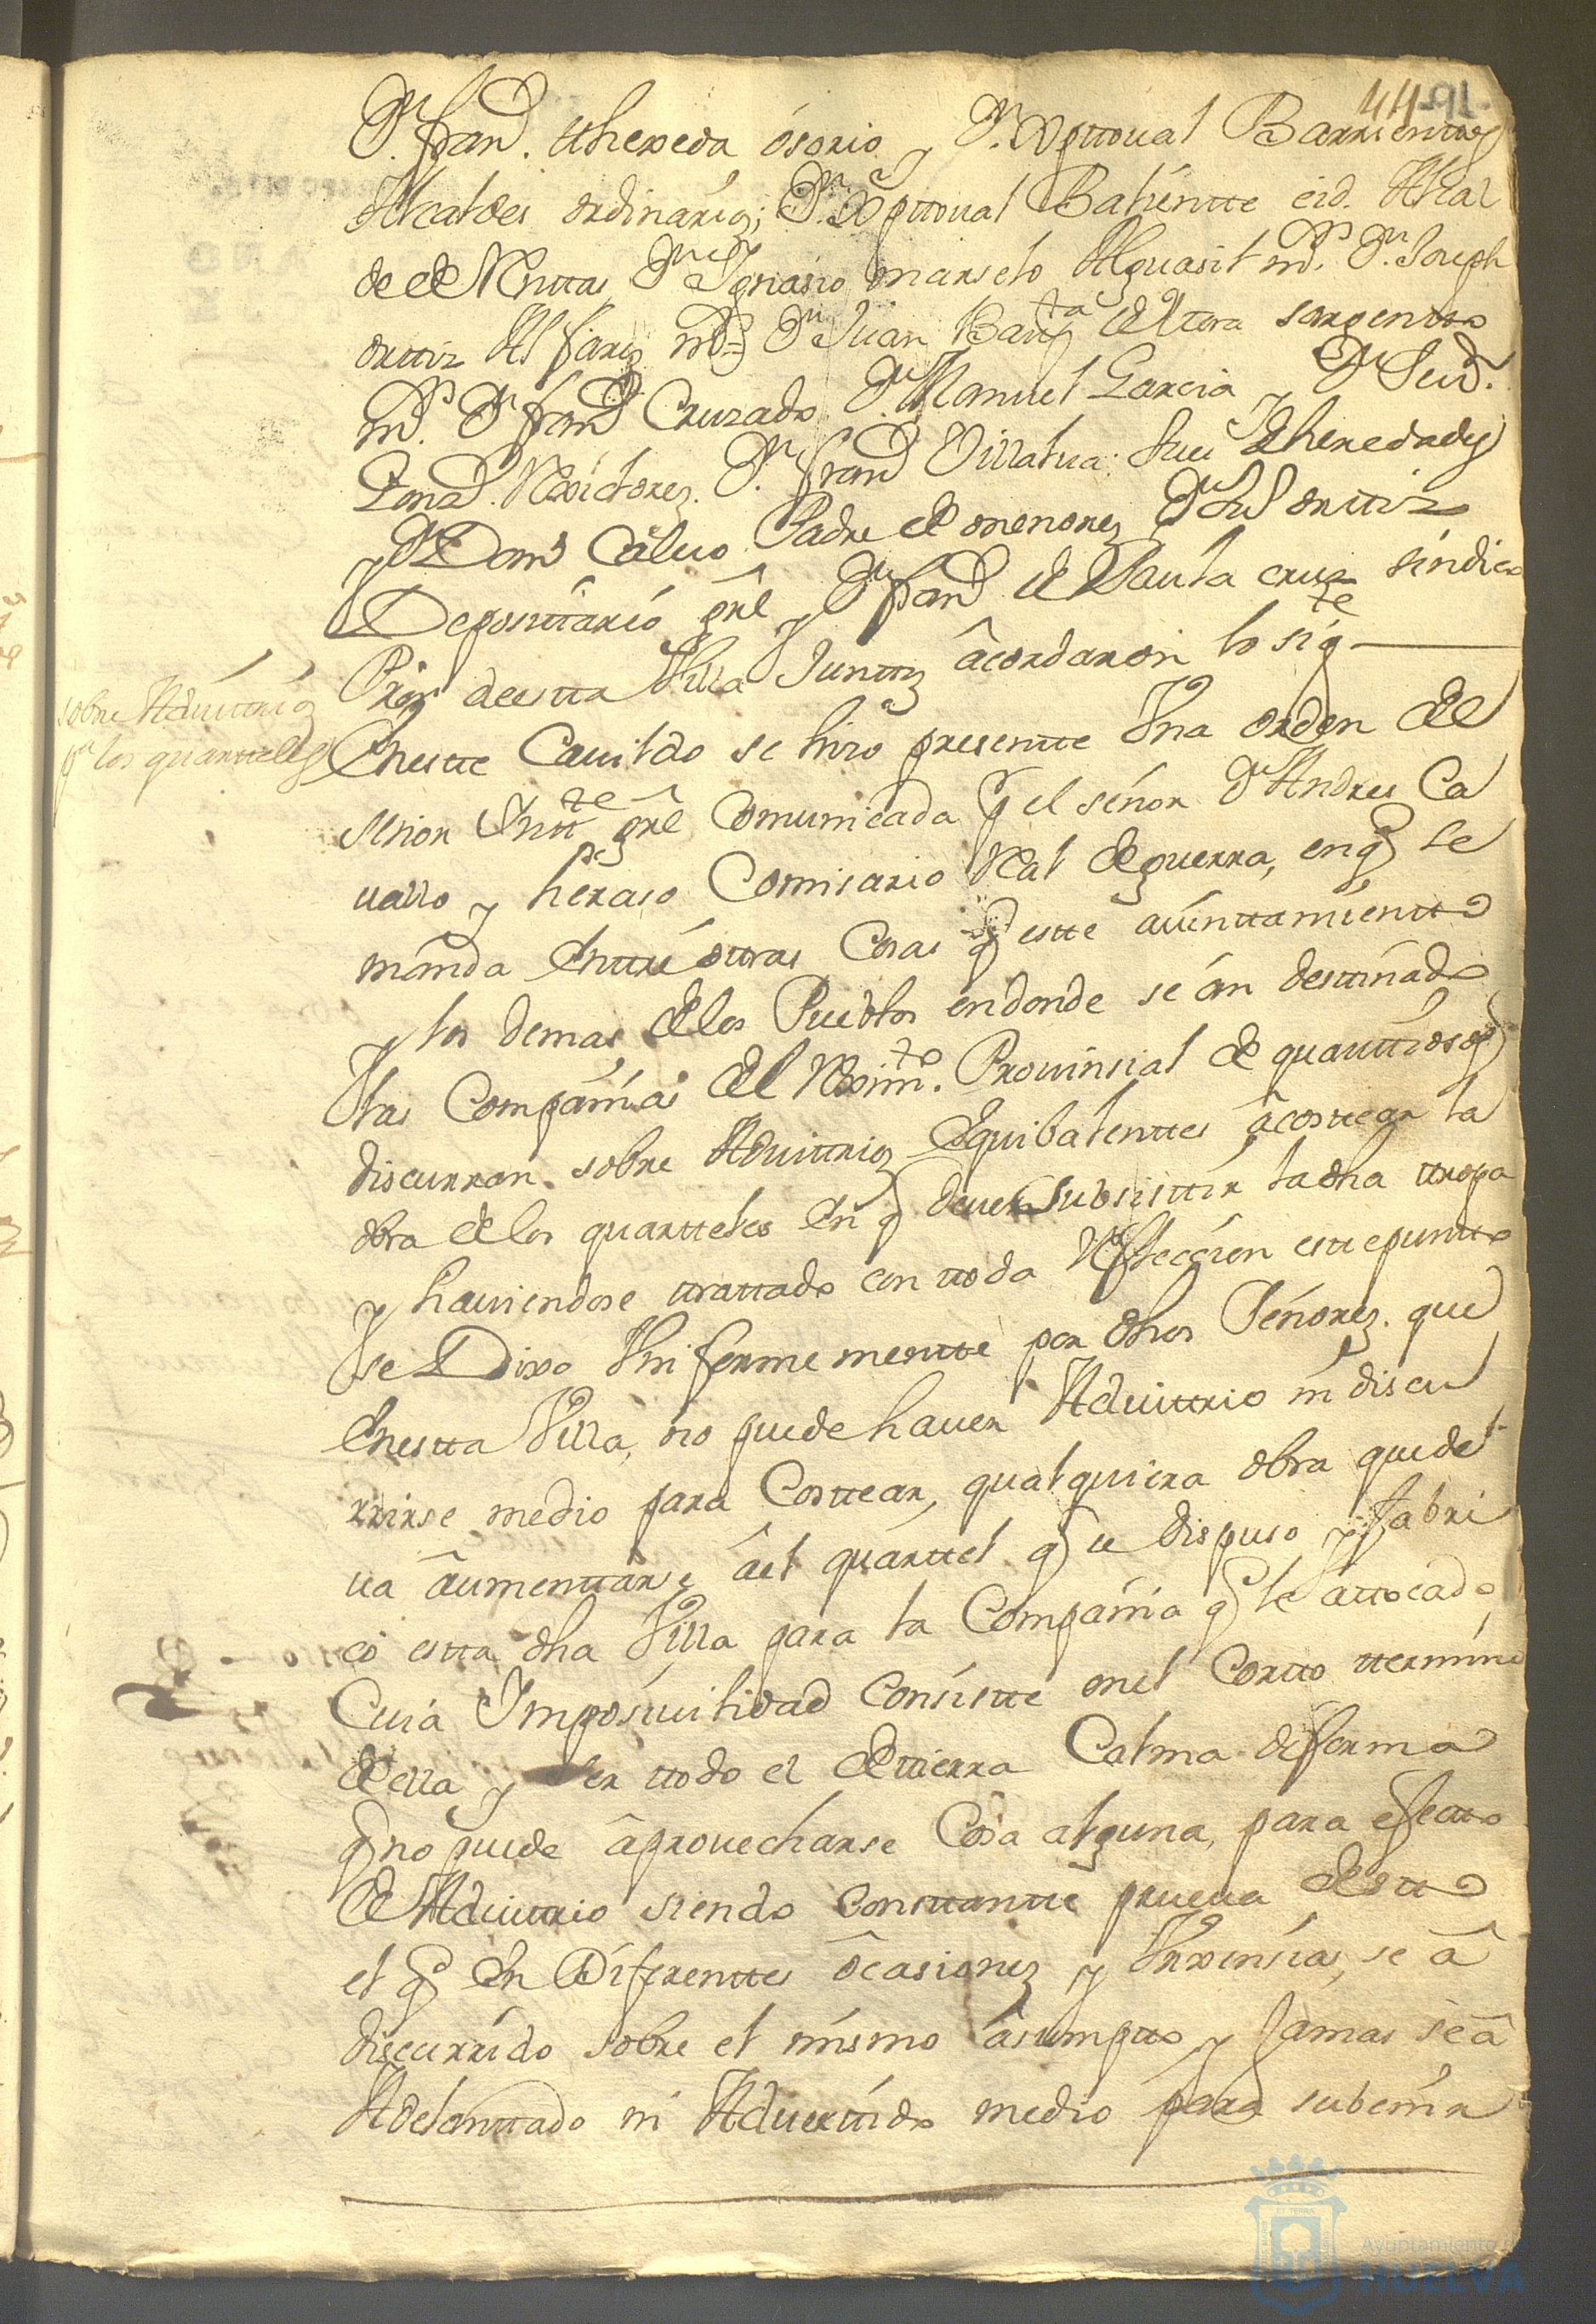 44 91
Dn. Francº. Athereda osorio y Dn. Xpttoual Barrienttos
Alcaldes ordinarios; Dn. Xpttoual Balientte eid. Alcal
de de Renttas Dn. Ignasio marselo Alguasil mor. Dn. Joseph
orttiz Alfarez mor Dn Juan Bautta de Utora sargentto
mor. Dn. francº Cruzado Dn. Manuel Garcia y Dn
Gonz. Rexidores. Dn. francº Villalua Juez de heredades
y Dn Domº Caluo Padre de menores Dn orttiz
Deposittario gral y Dn francº de Santa cruz sindico
Pror deestta Villa Junttos acordaron lo sigte
sobre Aduittrios
pa los quartteles
Enestte Cauildo se hizo presentte Una orden del
señor Intte gral Comunicada pr el señor Dn Andres Ca
uallo y heraso Comisario Real de guerra, enq se
manda Enttre ottras Cosas q estte aiunttamientto
y los demas de los Pueblos endonde se an desttinado
las Compañias del Reximto. Prouinsial de quattrosos
discurran sobre Aduittrios Equibalenttes acosttear la
obra delos quartteles en q deuen subsisttir la dha ttropa
y hauiendose trattado con ttoda Reflección esttepuntto
se Dixo Uniformementte por dhos Señores que
Enestta Villa, no puede hauer Aduittrio ni discu
rrirse medio para Costtear, qualquiera obra quede
ua aumenttarse ael quarttel q se dispuso y fabri
có estta dha Villa para la Compañia q le attocado
Cuia Imposiuilidad Consistte enel Cortto ttermino
de ella y ser ttodo el de ttierra Calma deforma
q no puede aprouecharse Cosa alguna, para efectto
de Aduittrio siendo Consttantte prueua de estto
el q En Diferenttes ocasiones y Urxensias, se a
discurrido sobre el mismo asumptto y Jamas se a
Adelanttado ni Aduerttido medio para subenir
Ayuntamiento de
HUELVA